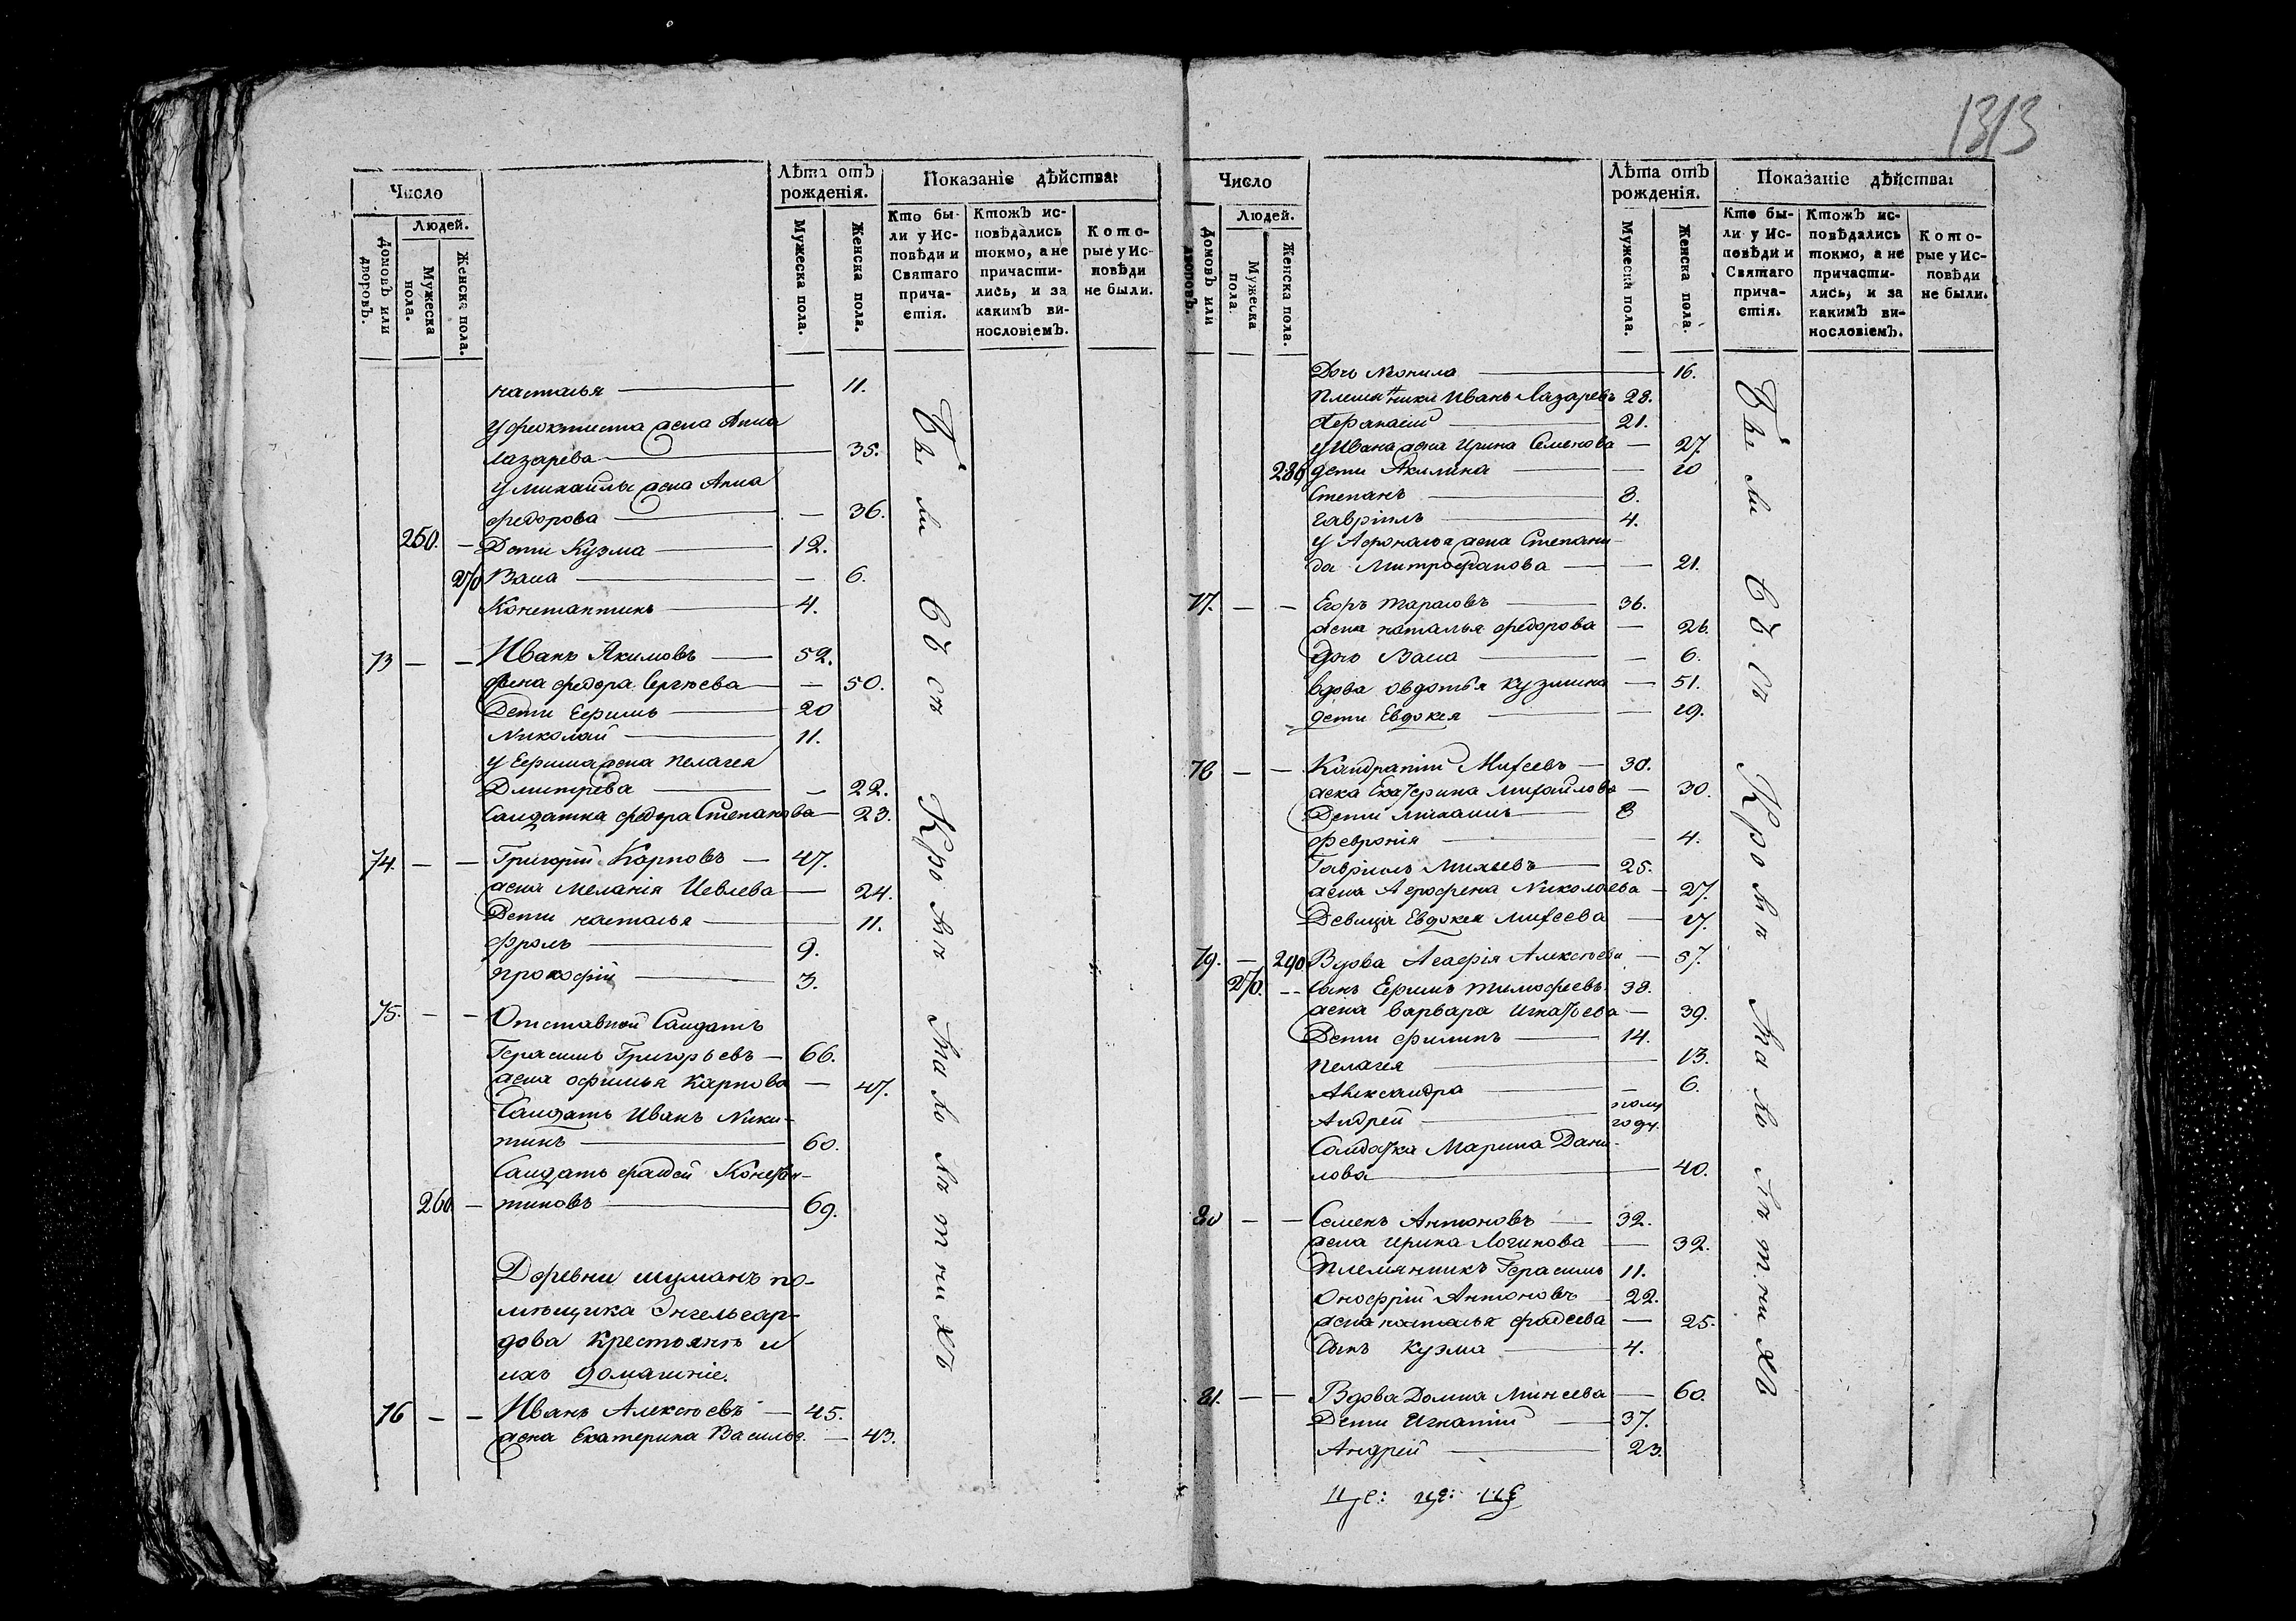 1313
Число
Лѣта отъ рожденія.
Показаніе дѣйства:
Людей.
Домовъ или дворовъ.
Мужеска пола.
Женска пола.
Мужеска пола.
Женска пола.
Кто были у Исповѣди и Святаго причастія.
Ктожъ исповѣдались токмо, а не причастились, и за какимъ винословіемъ.
Которые у Исповѣди не были.
наталья — 11.
У феоктиста жена Анна
лазарева — 35.
У михайлы жена Анна
федорова — — 36.
250. — Дети Кузма — 12.
270 Васа — — 6.
Константинъ — 4.
73 — — Иванъ Акимовъ — 52.
жена федора Сергѣева — — 50.
Дети Ефимъ — 20
Николай — 11.
У Ефима жена пелагея
Дмитрева — — 22.
Салдатка федора Степанова — 23.
74. — — Григорій Карповъ — 47.
жена меланія Иевлева — 24.
Дети наталья — 11.
фролъ — 9.
прокофій — 3.
75. — — Отставной Салдатъ
Герасимъ Григорьевъ — 66.
жена офимья Карпова — 47.
Салдатъ Иванъ Ники-
тинъ — 60.
Салдатъ фадей Констан-
260 — тиновъ — 69.
Деревни шуманъ по-
мѣщика Энгельгар-
дова крестьянѣ и
ихъ домашніе.
76 — — Иванъ Алексѣевъ — 45.
жена Екатерина Василье. — 43.
Всѣ были Кромѣ Малолѣтнихъ
Число
Лѣта отъ рожденія.
Показаніе дѣйства:
Людей.
Домовъ или дворовъ.
Мужеска пола.
Женска пола.
Мужеска пола.
Женска пола.
Кто были у Исповѣди и Святаго причастія.
Ктожъ исповѣдались токмо, а не причастились, и за какимъ винословіемъ.
Которые у Исповѣди не были.
Дочь Неонила — 16.
племянники Иванъ Лазаревъ 28.
Афанасій — 21.
у Ивана жена Ирина Семенова — 27.
286 дети Акилина — — 10
Степанъ — 8.
гавріилъ — 4.
у Афонасья жена Степани-
да Митрофанова — — 21.
77. — — Егоръ тарасовъ — 36.
жена наталья федорова — 26.
дочь Васа — — 6.
вдова овдотья кузмина — 51.
дети Евдокея — — 19.
78 — — Кандратій Михеевъ — 30.
жена Екатерина Михайлова — 30.
Дети михаилъ — 8
феврония — — 4.
Гавріилъ Михеевъ — 25.
жена Аграфена Николаева — 27.
Девица Евдокея михеева — 17.
79. — 290 Вдова Агафія Алексѣева — 57.
270. — Сынъ Ефимъ тимофеевъ 38.
жена варвара игнатьева — 39.
Дети филипъ — 14.
пелагея — 13.
Александра — — 6.
Андрей — полу года.
Солдатка Марина Дани-
лова — 40.
80 — — Семенъ Антоновъ — 32.
жена ирина Логинова — 32.
Племянникъ Герасимъ 11.
Онофрій Антоновъ — 22.
жена наталья фадеева — 25.
Сынъ кузма — 4.
81. — — Вдова Домна Минеева — 60.
Дети Игнатій — 37.
Андрей — 23.
Всѣ были Кромѣ Малолѣтнихъ